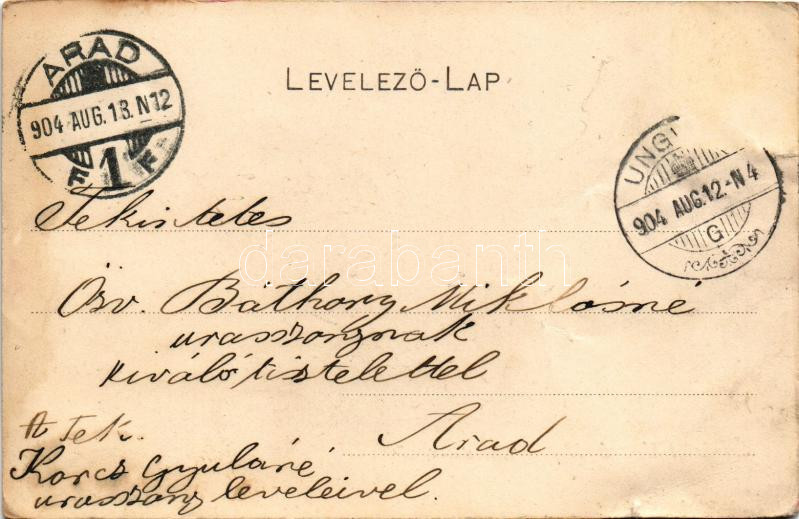 ARAD
904 AUG. 13. N12
F 1 F
LEVELEZŐ-LAP
UNG
904 AUG.12.-N4
G
Tekintetes
Özv. Báthory Miklósné
urasszonynak
kiváló tisztelettel
Arad
A Tek.
Koróz Gyuláné
urasszony leveleivel.
darabanth